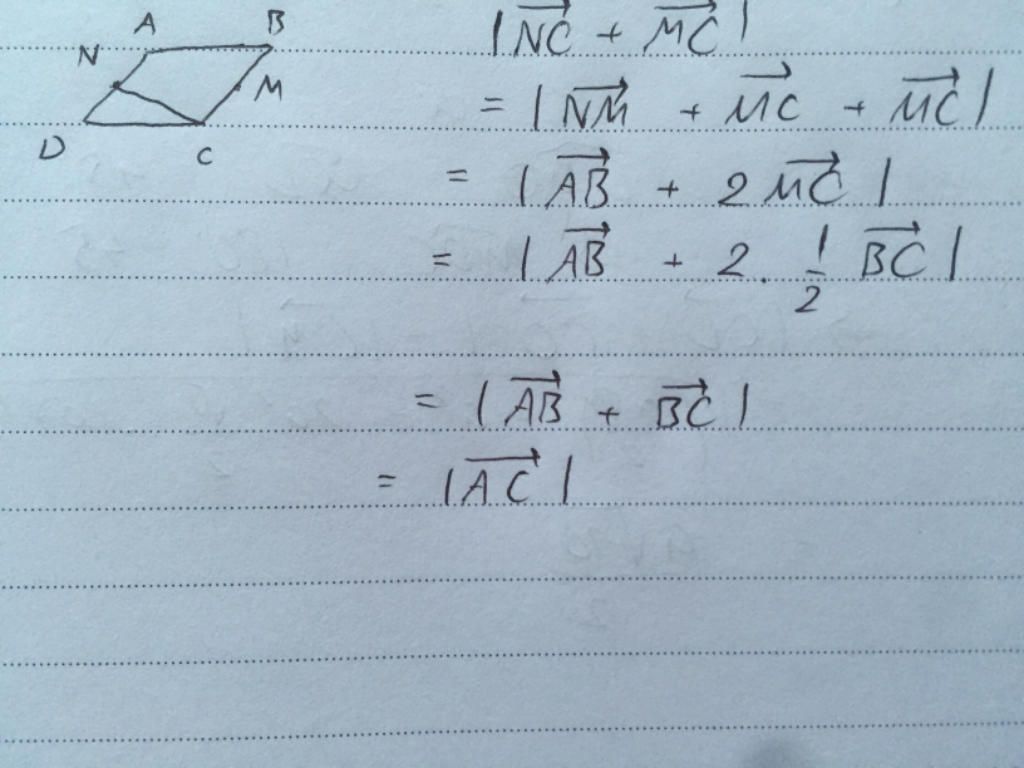 A B
N M
D C
|NC⃗ + MC⃗|
= |NM⃗ + MC⃗ + MC⃗|
= |AB⃗ + 2MC⃗|
= |AB⃗ + 2 . 1/2 BC⃗|
= |AB⃗ + BC⃗|
= |AC⃗|